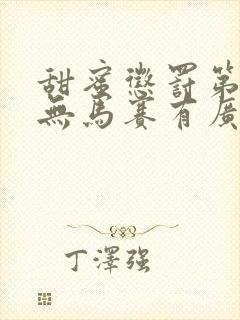 甜蜜懲罰第
無馬賽有廣
丁澤强